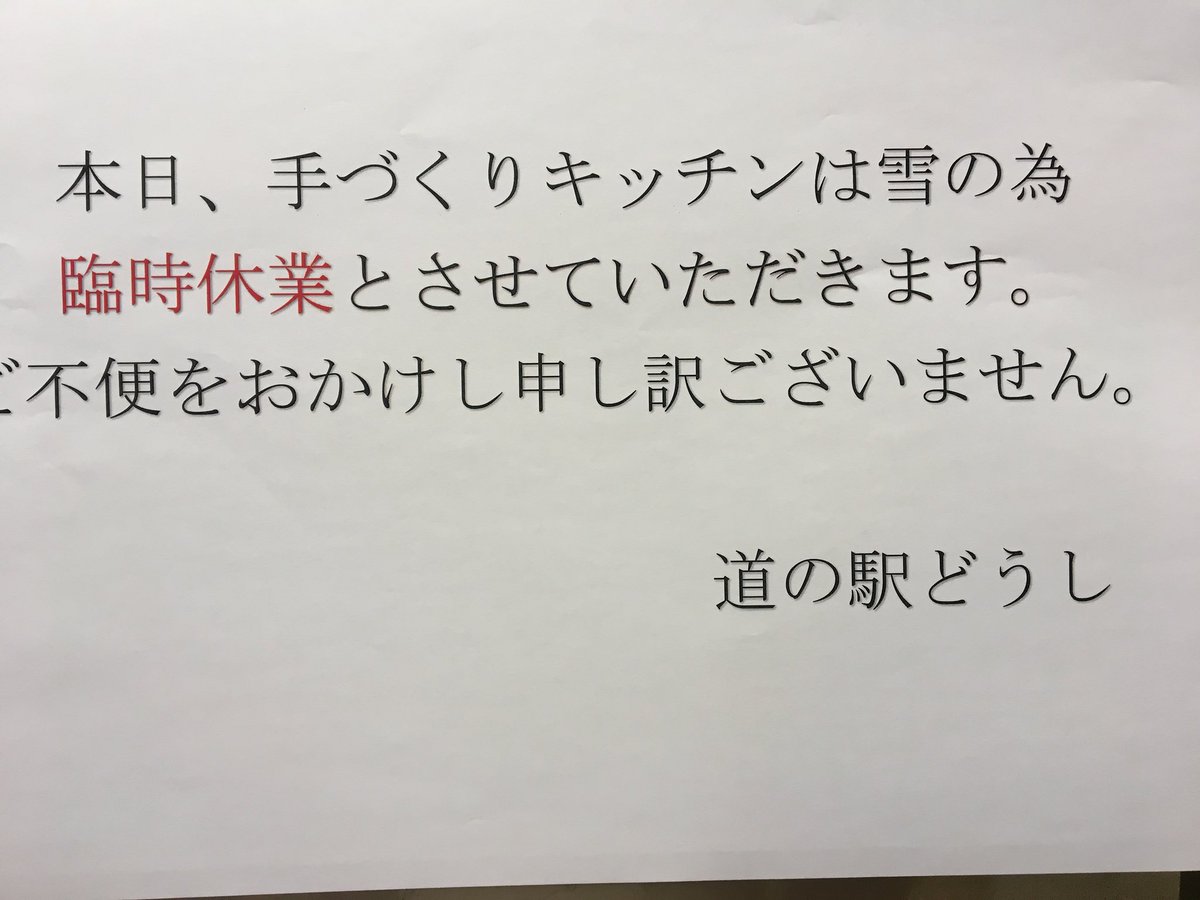 本日、手づくりキッチンは雪の為
臨時休業とさせていただきます。
ご不便をおかけし申し訳ございません。
道の駅どうし